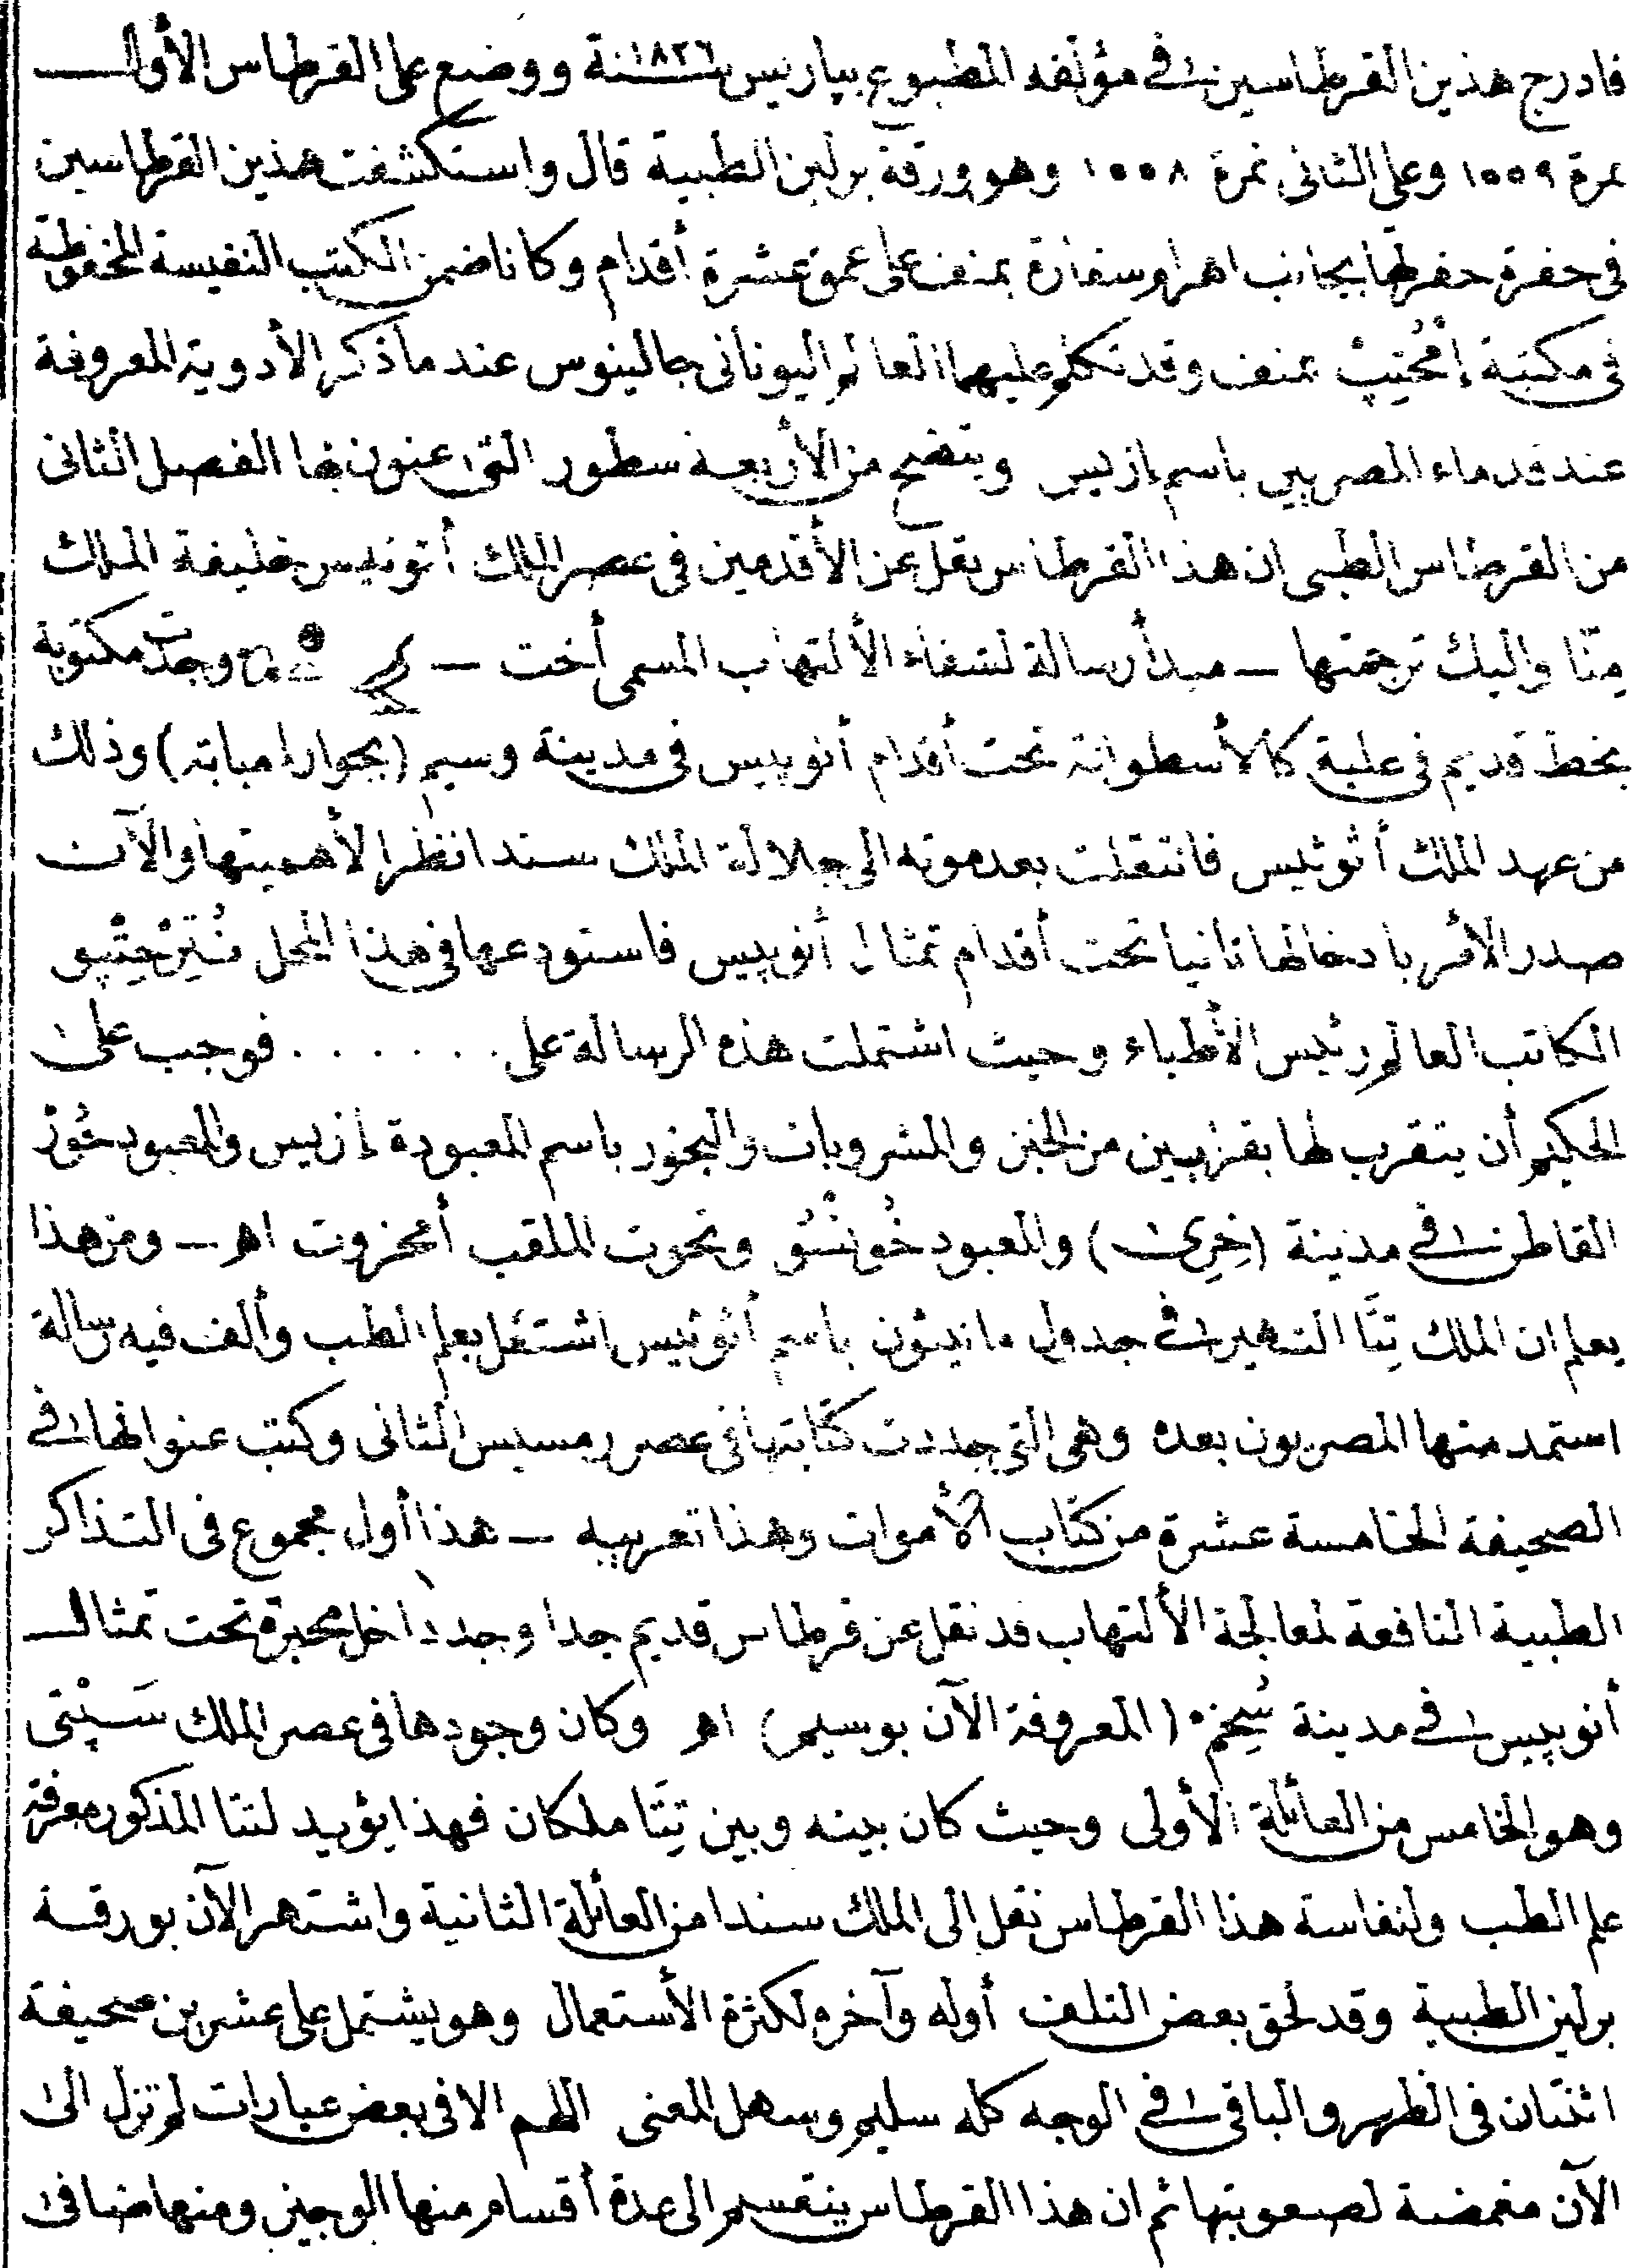 فادرج هذين القرطاسين فى مؤلفه المطبوع بباريس سنة ١٨٢٦ ووضع على القرطاس الأول
نمرة ١٥٥٩ وعلى الثانى نمرة ١٥٥٨ وهو ورقة برلين الطبية قال واستكشفت هذين القرطاسين
فى حفرة حفرتها بجانب اهرام سقارة بمنف على عمق عشرة أقدام وكانا ضمن الكتب النفيسة المحفوظة
فى مكتبة إمحتِب بمنف وقد تكلم عليهما العالم اليونانى جالينوس عند ما ذكر الأدوية المعروفة
عند قدماء المصريين باسم إزيس ويتضح من الأربعة سطور التى عنون بها الفصل الثانى
من القرطاس الطبى ان هذا القرطاس نقل عن الأقدمين فى عصر الملك أتوثيس خليفة الملك
مِنّا واليك ترجمتها — مبدأ رسالة لشفاء الألتهاب المسمى أخت — وجدت مكتوبة
بخط قديم فى علبة كالأسطوانة تحت أقدام أنوبيس فى مدينة وسيم (بجوار امبابة) وذلك
من عهد الملك أثوثيس فانتقلت بعد موته الى جلالة الملك سندا نظرا لأهميتها والآن
صدر الأمر بادخالها ثانيا تحت أقدام تمثال أنوبيس فاستودعها فى هذا المحل نُتِرْحِتْپو
الكاتب العالم رئيس الأطباء وحيث اشتملت هذه الرسالة على . . . . . . فوجب على
الحكيم أن يتقرب لها بقرابين من الخبز والمشروبات والبخور باسم المعبودة إزيس والمعبود حُورْ
القاطن فى مدينة (خِرِى) والمعبود خُونْسُو وتحوت الملقب أمخروت اهـ — ومن هذا
يعلم ان الملك تِتَا الشهير فى جدول مانيثون باسم أثوثيس اشتغل بعلم الطب وألف فيه رسالة
استمد منها المصريون بعده وهى التى جددت كتابتها فى عصر رمسيس الثانى وكتب عنوانها فى
الصحيفة الخامسة عشرة من كتاب الأموات وهذا تعريبه — هذا أول مجموع فى التذاكر
الطبية النافعة لمعالجة الألتهاب قد نقل عن قرطاس قديم جدا وجد داخل محبرة تحت تمثال
أنوبيس فى مدينة سُخِم (المعروفة الآن بوسيم) اهـ وكان وجودها فى عصر الملك سَپْتى
وهو الخامس من العائلة الأولى وحيث كان بينه وبين تِتَا ملكان فهذا يؤيد لتتا المذكور معرفة
علم الطب ولنفاسة هذا القرطاس نقل الى الملك سندا من العائلة الثانية واشتهر الآن بورقة
برلين الطبية وقد لحق بعض التلف أوله وآخره لكثرة الأستعمال وهو يشتمل على عشرين صحيفة
اثنتان فى الظهر والباقى فى الوجه كله سليم وسهل المعنى اللهم الا فى بعض عبارات لم تزل الى
الآن مغمضة لصعوبتها ثم ان هذا القرطاس ينقسم الى عدة أقسام منها الوجيز ومنها ضافى